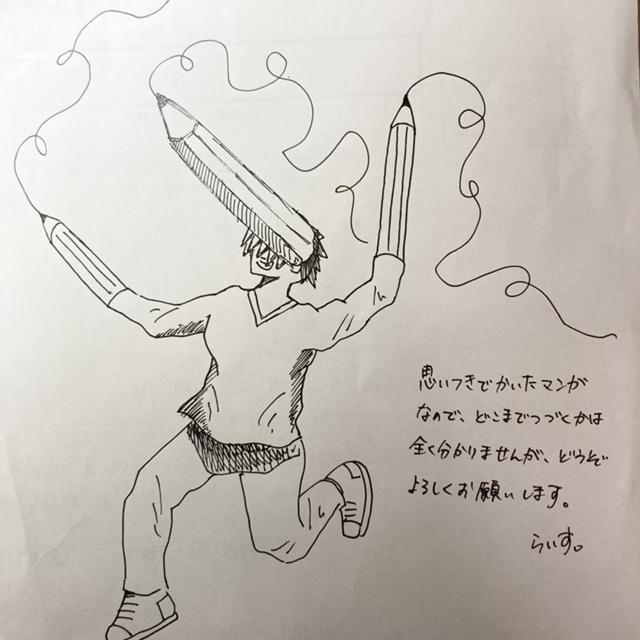 思いつきでかいたマンガ
なので、どこまでつづくかは
全く分かりませんが、どうぞ
よろしくお願いします。
らいす。